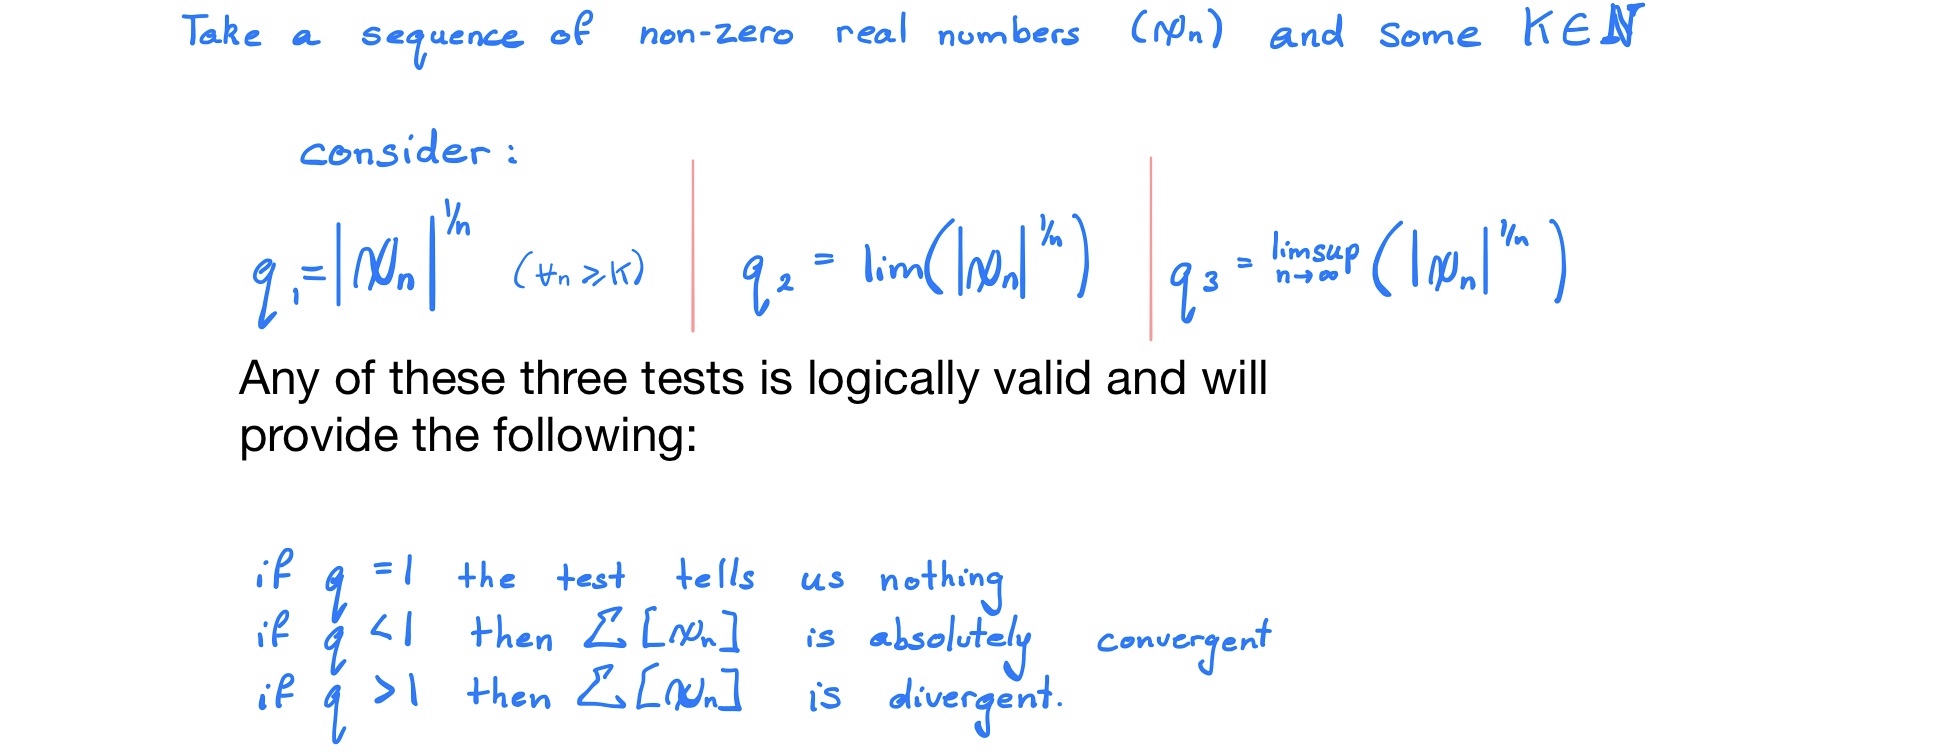 Take a sequence of non-zero real numbers (xₙ) and some K ∈ ℕ
consider:
q₁ = |xₙ|^{1/n} (∀n ⩾ K)
q₂ = lim(|xₙ|^{1/n})
q₃ = limsup_{n→∞} (|xₙ|^{1/n})
Any of these three tests is logically valid and will
provide the following:
if q = 1 the test tells us nothing
if q < 1 then Σ[xₙ] is absolutely convergent
if q > 1 then Σ[xₙ] is divergent.